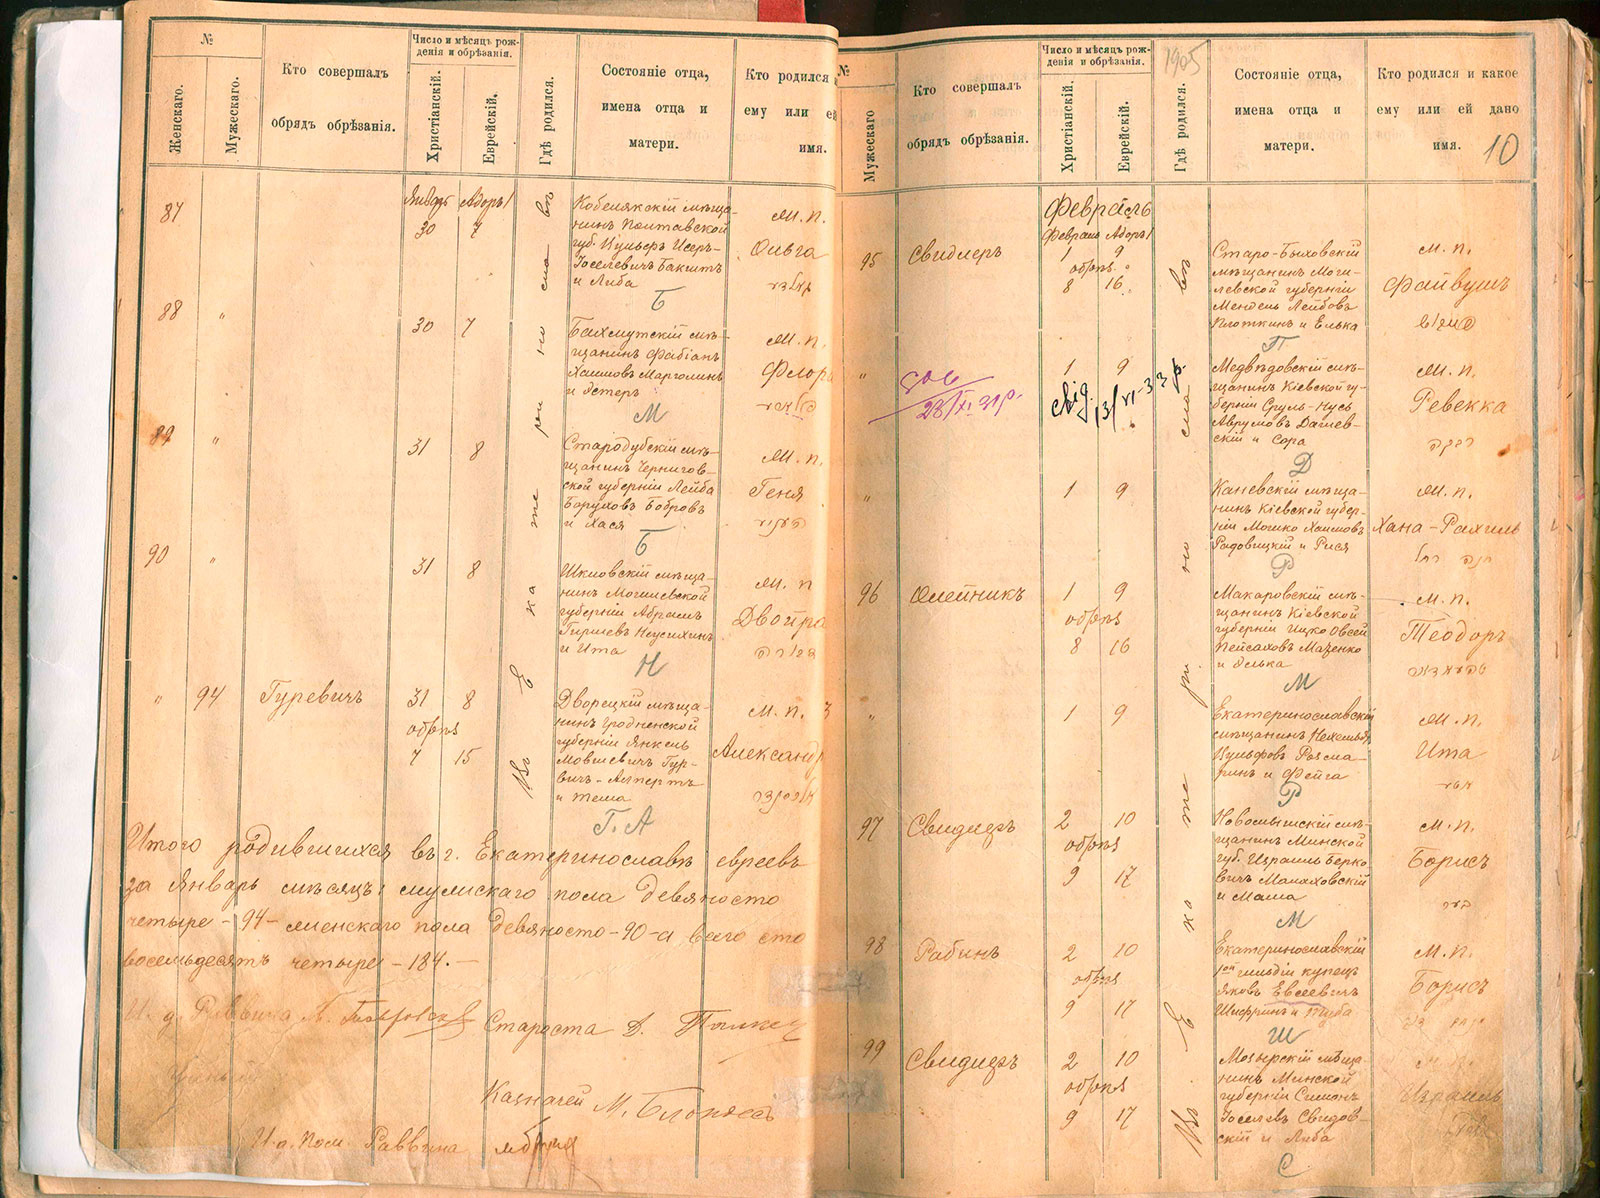 №
Женскаго.
Мужескаго.
Кто совершалъ
обрядъ обрѣзанія.
Число и мѣсяцъ рож-
денія и обрѣзанія.
Христіанскій.
Еврейскій.
Гдѣ родился.
Состояніе отца,
имена отца и
матери.
Кто родился
ему или ей
имя.
Январь Адоръ I
87
30 7
Кобелякскій мѣща-
нинъ Полтавской
губ. Вульфъ Исеръ-
Іоселевичъ Бакштъ
и Либа
Б
М. п.
Ольга
88 "
30 7
Бахмутскій мѣ-
щанинъ Фабіанъ
Хаимовъ Марголинъ
и Эстеръ
М
М. п.
Флора
89 "
31 8
Стародубскій мѣ-
щанинъ Чернигов-
ской губерніи Лейба
Боруховъ Бобровъ
и Хася
Б
М. п.
Геня
90 "
31 8
Шкловскій мѣща-
нинъ Могилевской
губерніи Абрамъ
Гиршевъ Неусихинъ
и Ита
Н
М. п
Двойра
" 94
Гуревичъ
31 8
обрѣз
7 15
Дворецкій мѣща-
нинъ Гродненской
губерніи Янкель
Мовшевичъ Гур-
вичъ-Альпертъ
и Тема
Г. А
М. п. З
Александр
Въ Екатеринославѣ
Итого родившихся въ г. Екатеринославѣ евреевъ
за Январь мѣсяцъ: мужскаго пола девяносто
четыре - 94 - женскаго пола девяносто - 90 - а всего сто
восемьдесятъ четыре - 184. -
И. д. Раввина
Староста
Казначей
И. д. Пом. Раввина
№
Мужескаго
Кто совершалъ
обрядъ обрѣзанія.
Число и мѣсяцъ рож-
денія и обрѣзанія.
Христіанскій.
Еврейскій.
1905
Гдѣ родился.
Состояніе отца,
имена отца и
матери.
Кто родился и какое
ему или ей дано
имя.
10
Февраль
Февраль Адоръ I
95
Свидлеръ
1 9
обрѣз.
8 16
Старо-Быховскій
мѣщанинъ Моги-
левской губерніи
Мендель Лейбовъ
Плоткинъ и Элька
П
М. п.
Файвушъ
"
28/XI 31 р.
1 9
13/VI-33 р.
Медвѣдовскій мѣ-
щанинъ Кіевской гу-
берніи Сруль-Нусъ
Аврумовъ Дашев-
скій и Сора
Д
М. п.
Ревекка
רבקה
"
1 9
Каневскій мѣща-
нинъ Кіевской губер-
ніи Мошко Хаимовъ
Радовицкій и Рися
Р
М. п.
Хана-Рахиль
חנה רחל
96
Олейникъ
1 9
обрѣз
8 16
Макаровскій мѣ-
щанинъ Кіевской
губерніи Ицко Овсей
Пейсаховъ Мазенко
и Элька
М
М. п.
Теодоръ
"
1 9
Екатеринославскій
мѣщанинъ
Вульфовъ Розма-
ринъ и Фейга
Р
М. п.
Ита
97
Свидлеръ
2 10
обрѣз
9 17
Новомышскій мѣ-
щанинъ Минской
губ. Израиль Берко
вичъ Малаховскій
и Маша
М
М. п.
Борисъ
98
Рабинъ
2 10
обрѣз
9 17
Екатеринославскій
1ой гильдіи купецъ
Яковъ Евсеевичъ
Шифринъ и Люба
Ш
М. п.
Борисъ
99
Свидлеръ
2 10
обрѣз
9 17
Мозырскій мѣща-
нинъ Минской
губерніи Симонъ
Іоселевъ Свидов-
скій и Либа
С
М. п.
Израиль
Въ Екатеринославѣ